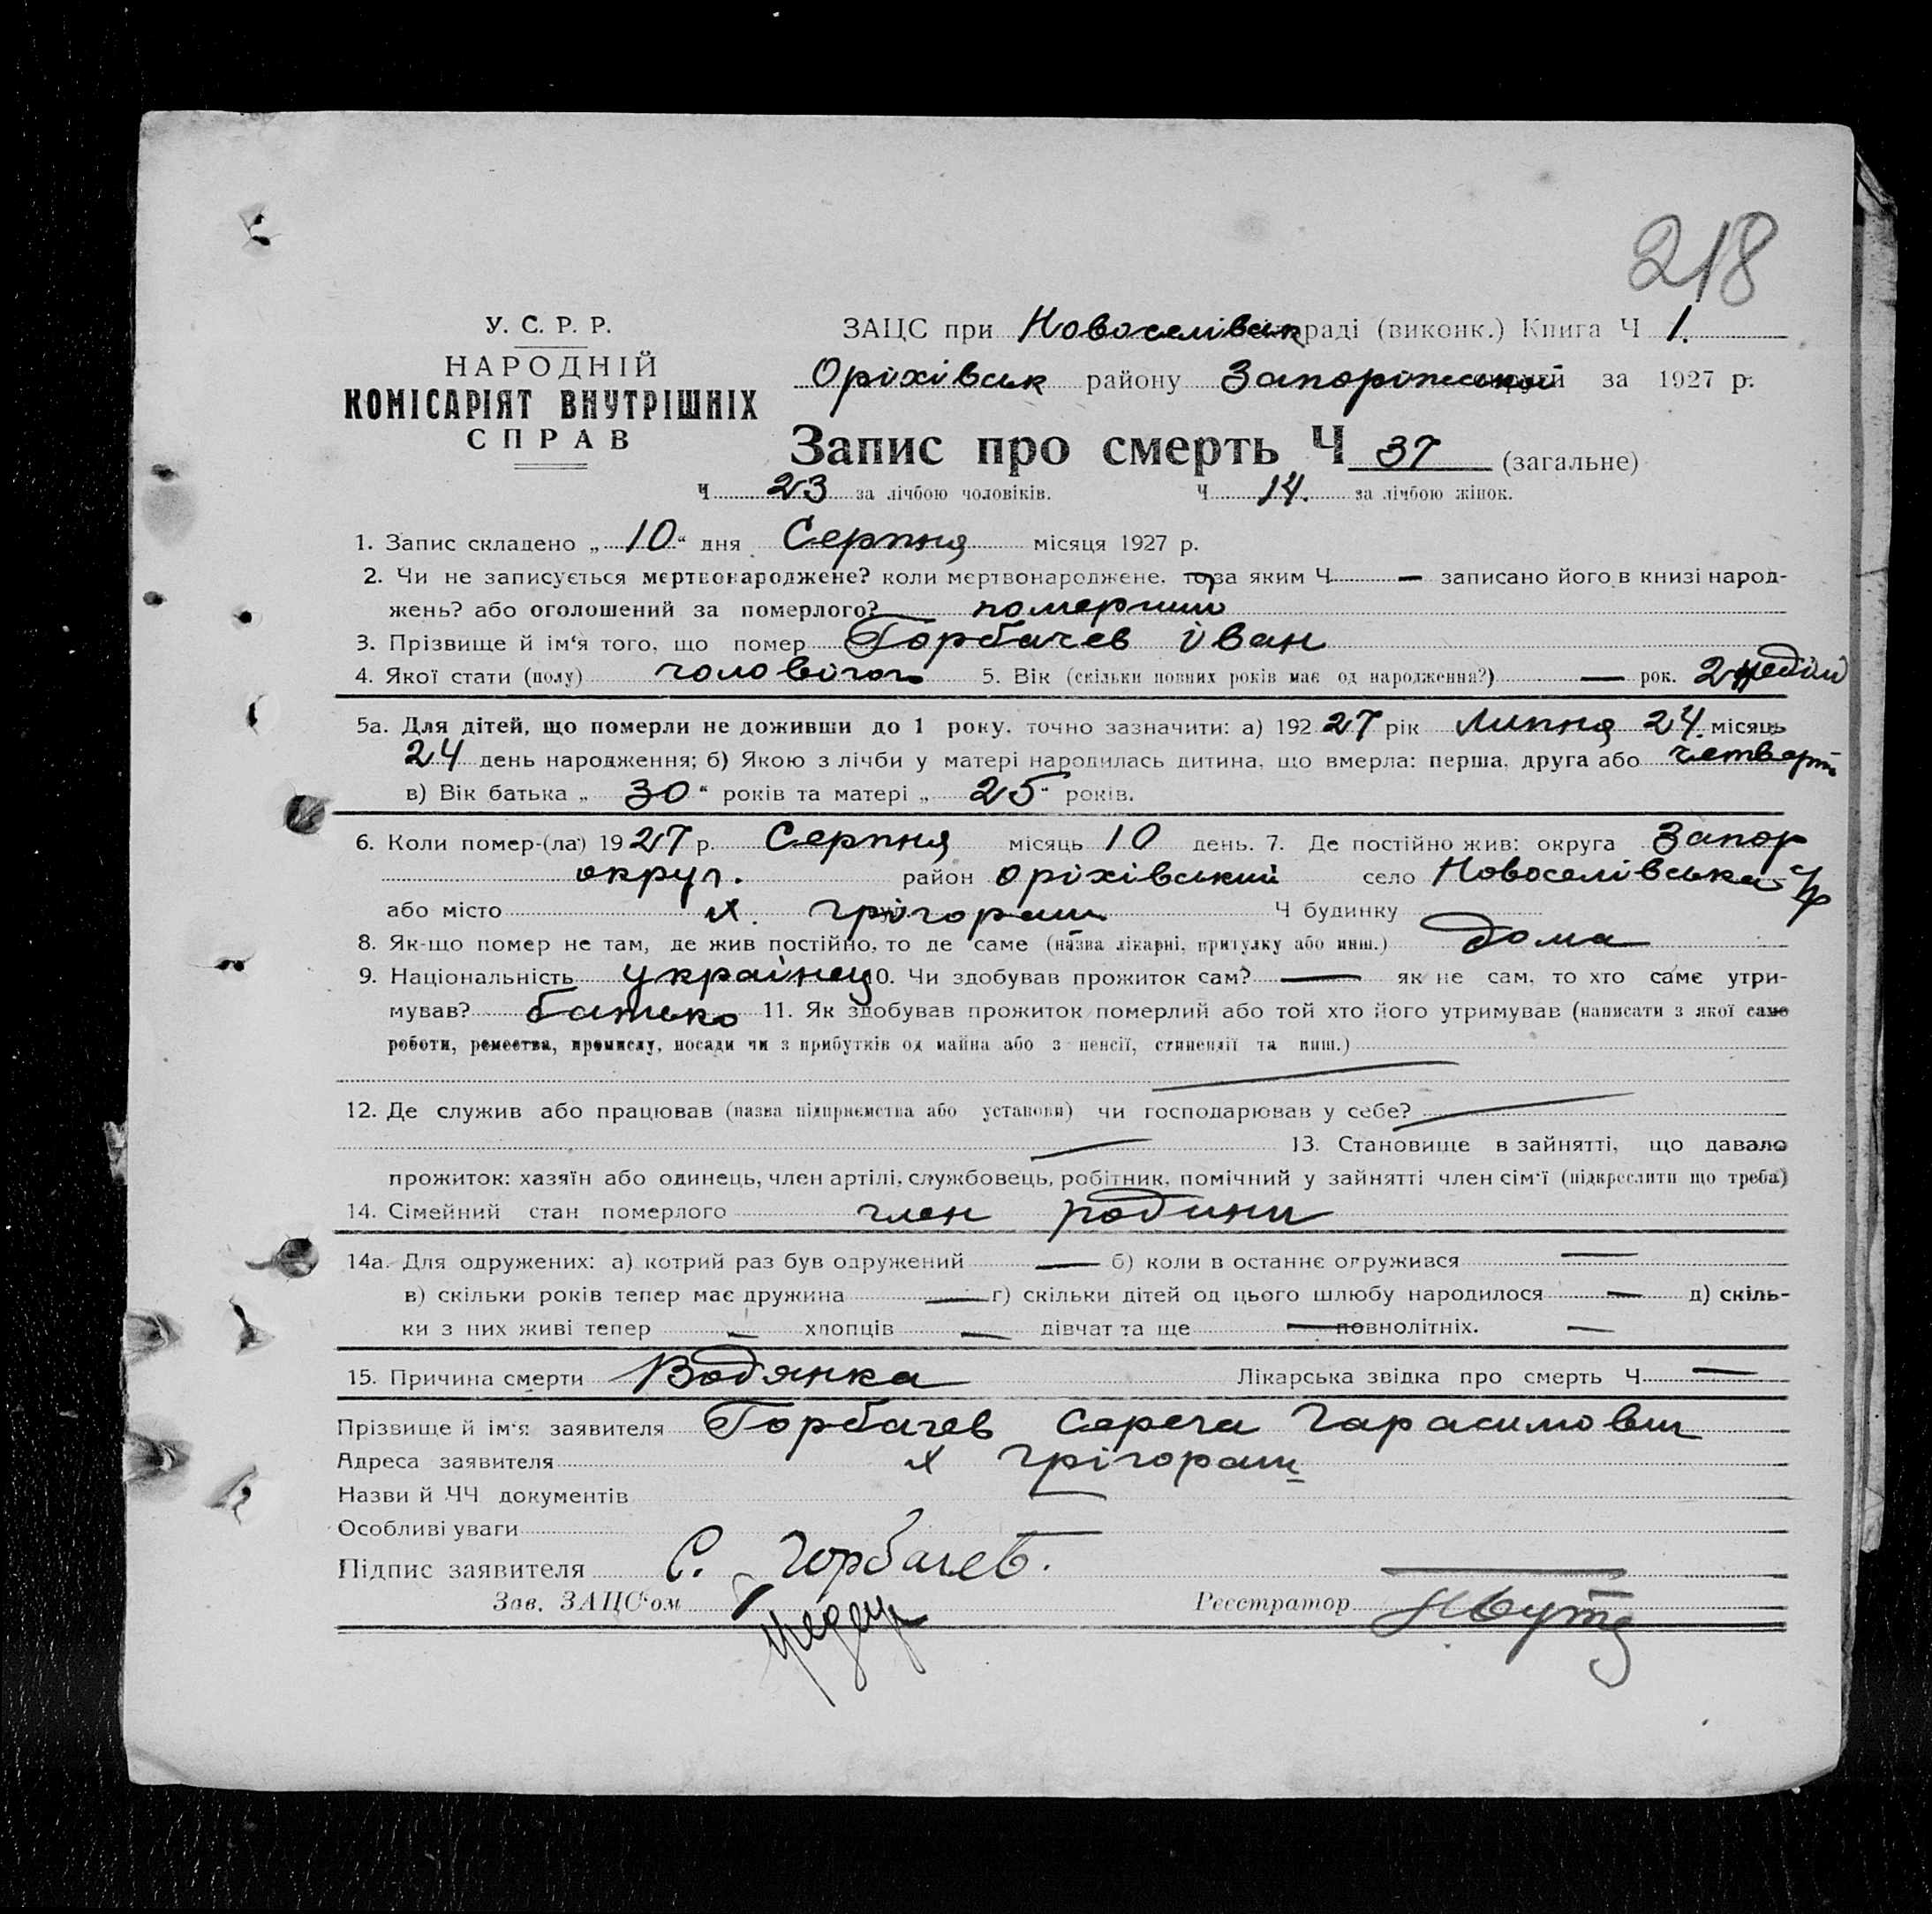 218
У. С. Р. Р.
НАРОДНІЙ
КОМІСАРІЯТ ВНУТРІШНІХ
СПРАВ
ЗАЦС при Новоселівськ раді (виконк.) Книга Ч 1.
Оріхівськ району Запоріжської округи за 1927 р.
Запис про смерть Ч 37 (загальне)
Ч 23 за лічбою чоловіків. Ч 14. за лічбою жінок.
1. Запис складено „10“ дня Серпня місяця 1927 р.
2. Чи не записується мертвонароджене? коли мертвонароджене, то за яким Ч — записано його в книзі народ-
жень? або оголошений за померлого? померший
3. Прізвище й ім‘я того, що помер Горбачев Іван
4. Якої стати (полу) чоловічого 5. Вік (скільки повних років має од народження?) — рок. 2 неділі
5а. Для дітей, що померли не доживши до 1 року, точно зазначити: а) 192 27 рік Липня 24 місяць
24 день народження; б) Якою з лічби у матері народилась дитина, що вмерла: перша, друга або четверта
в) Вік батька „30“ років та матері „25“ років.
6. Коли помер-(ла) 1927 р. Серпня місяць 10 день. 7. Де постійно жив: округа Запор
округ. район Оріхівський село Новоселівська с/р
або місто х. Грігораш Ч будинку
8. Як-що помер не там, де жив постійно, то де саме (назва лікарні, притулку або инш.) Дома
9. Національність українец 10. Чи здобував прожиток сам? — як не сам, то хто саме утри-
мував? батько 11. Як здобував прожиток померлий або той хто його утримував (написати з якої саме
роботи, ремества, промислу, посади чи з прибутків од майна або з пенсії, стипендії та инш.)
—
12. Де служив або працював (назва підприємства або установи) чи господарював у себе? —
— 13. Становище в зайнятті, що давало
прожиток: хазяїн або одинець, член артілі, службовець, робітник, помічний у зайнятті член сім‘ї (підкреслити що треба)
14. Сімейний стан померлого член родини
14а. Для одружених: а) котрий раз був одружений — б) коли в останнє одружився —
в) скільки років тепер має дружина — г) скільки дітей од цього шлюбу народилося — д) скіль-
ки з них живі тепер — хлопців — дівчат та ще — повнолітніх. —
15. Причина смерти Водянка Лікарська звідка про смерть Ч —
Прізвище й ім‘я заявителя Горбачев Гарасимович
Адреса заявителя х Грігораш
Назви й ЧЧ документів
Особливі уваги
Підпис заявителя С. Горбачев.
Зав. ЗАЦС‘ом
Реєстратор